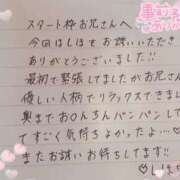 スタート枠お兄さんへ
今回はしほをお誘いいただき
ありがとうございました!!
最初て緊張してましたがお兄さんの
優しい人柄でリラックスできまし
奥までおのんちんパンパンして
てすごく気持ちよかったよ…♡
またお誘いお待ちしてます!!
♡しほ